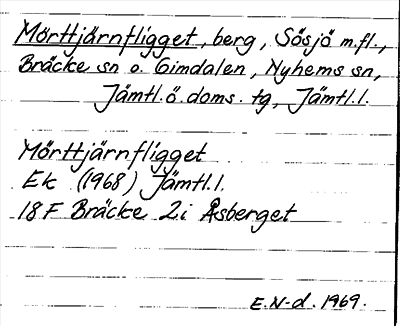 Mörttjärnfligget, berg, Sösjö m.fl.,
Bräcke sn o. Gimdalen, Nyhems sn,
Jämtl.ö.doms. tg, Jämtl.l.
Mörttjärnfligget
Ek (1968) Jämtl.l.
18 F Bräcke 2i Åsberget
E.N-d. 1969.